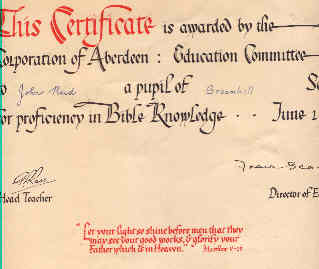 This Certificate is awarded by the
Corporation of Aberdeen : Education Committee
to John Reid a pupil of Greenhill Sc
for proficiency in Bible Knowledge . . June 1
Head Teacher
Director of E
"Let your light so shine before men that they
may see your good works, & glorify your
Father which is in Heaven."
Matthew V-16